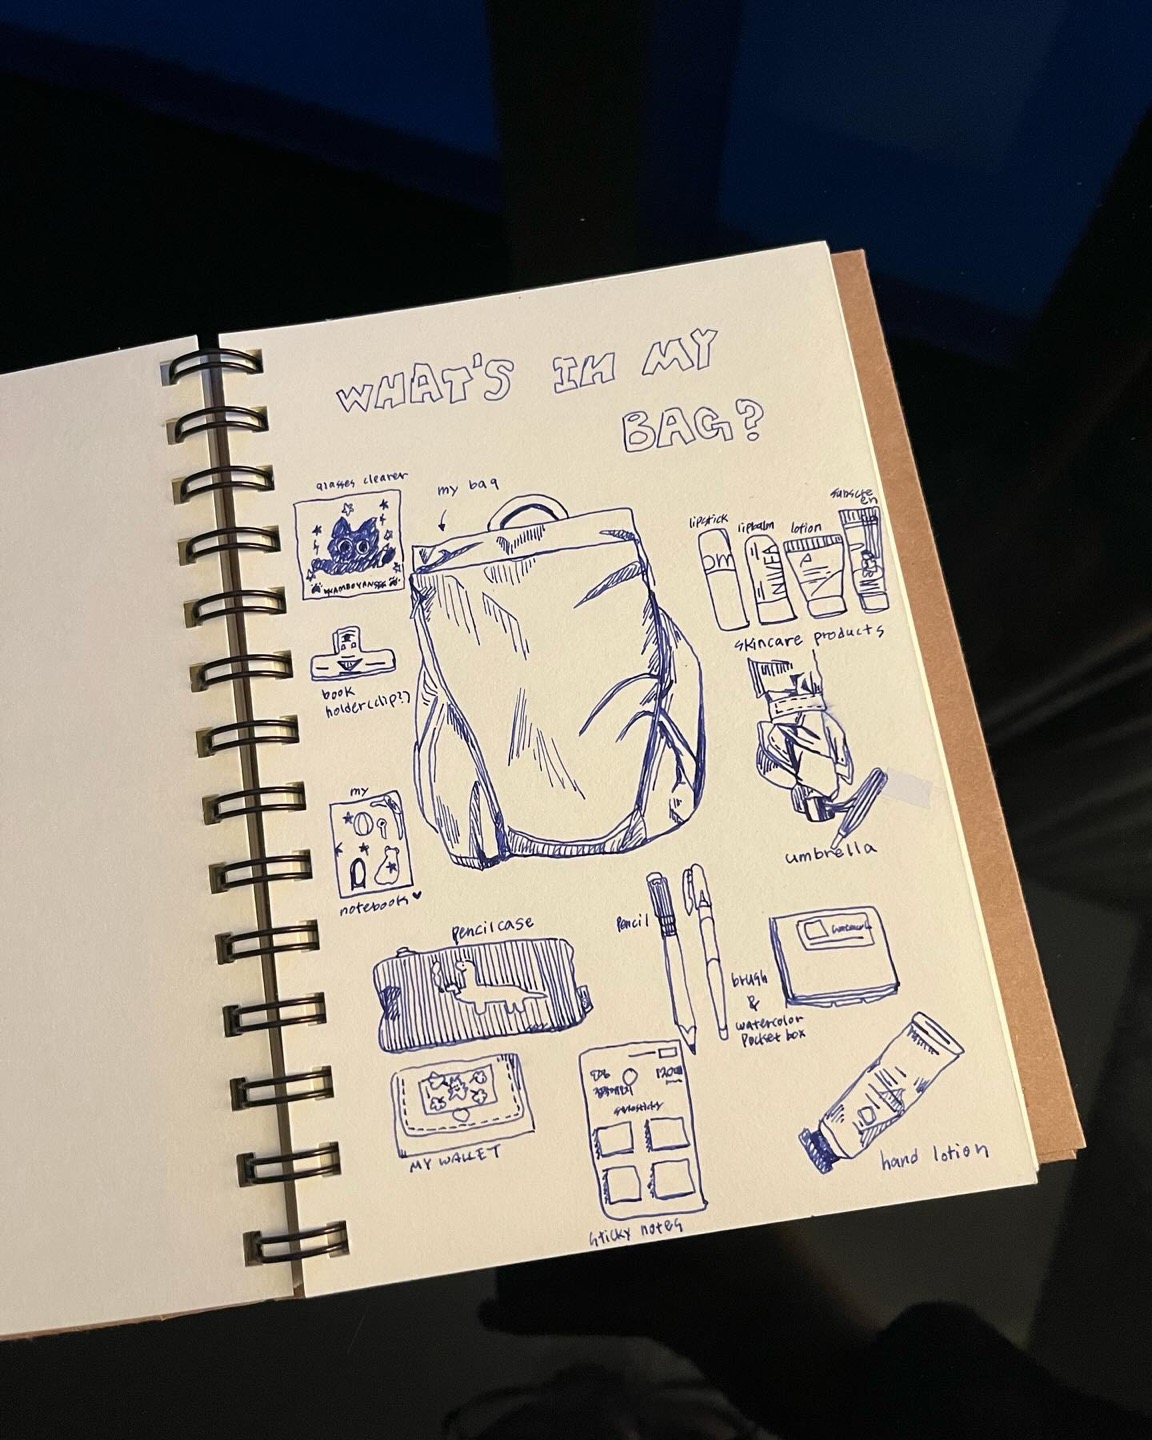 WHAT'S IN MY
BAG?
glasses cleaner
my bag
lipstick
lipbalm
lotion
sunscre
en
OM
NIVEA
skincare products
book
holder(clip??)
my
notebook
umbrella
pencilcase
pencil
brush
&
watercolor
pocket box
MY WALLET
sticky notes
hand lotion